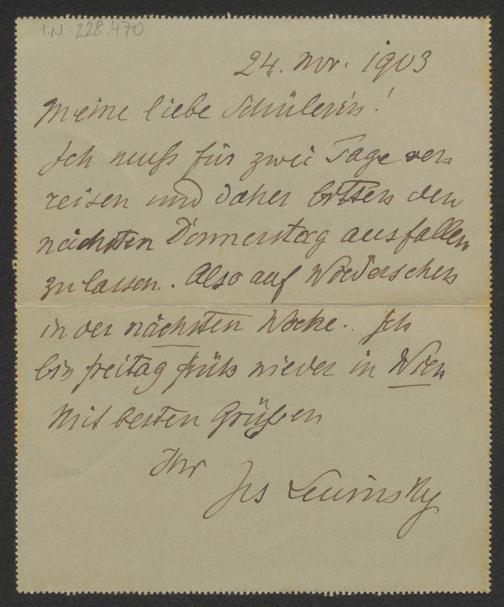 I.N. 228.470
24. Nov. 1903
Meine liebe Schülerin!
Ich muß für zwei Tage ver-
reisen und daher bitten den
nächsten Donnerstag ausfallen
zu lassen. Also auf Wiedersehen
in der nächsten Woche. Ich
bin freitag früh wieder in Wien
Mit besten Grüßen
Ihr
Jos Lewinsky